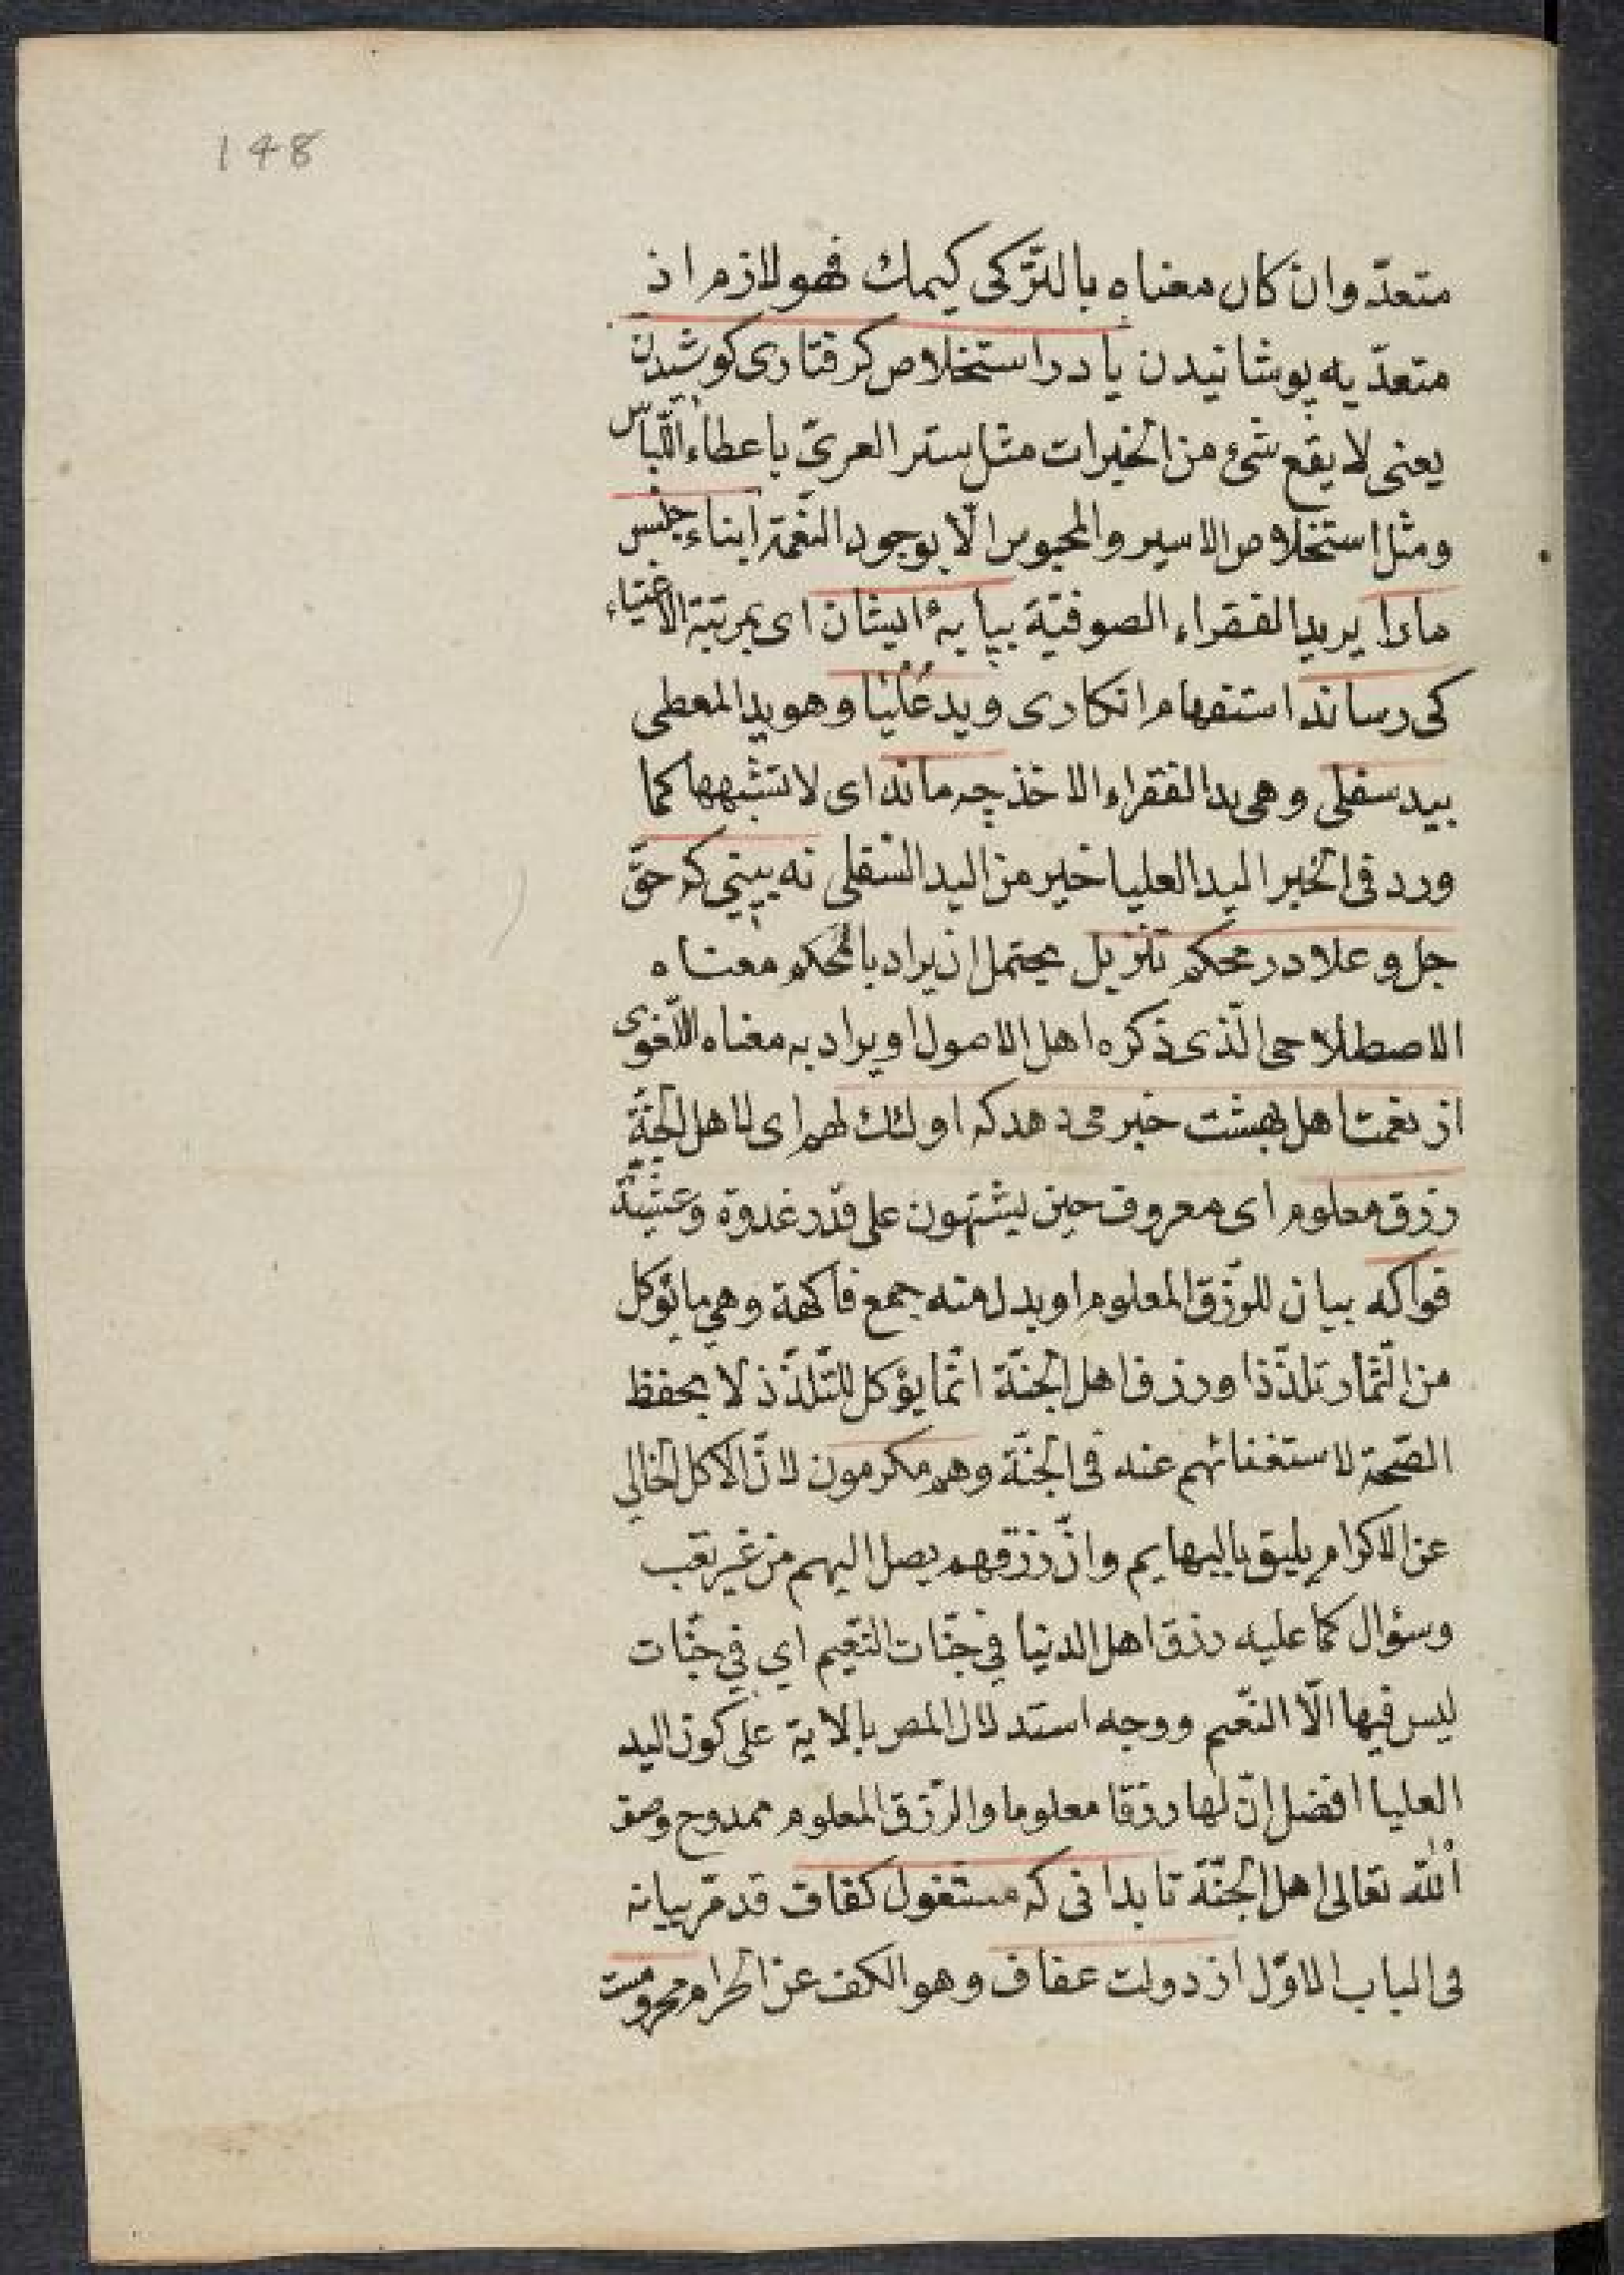 148
متعدّ وان كان معناه بالتّركى كيمك فهو لازم اذ
متعدّيه پوشانيدن يا در استخلاص كرفتارى كوشيدن
يعنى لا يقع شئ من الخيرات مثل ستر العرىّ باعطاء اللّباس
ومثل استخلاص الاسير والمحبوس الّا بوجود النعمة ابناء جنس
مارا يريد الفقراء الصوفيّة بپايهٔ ايشان اى بمرتبة الاغنياء
كى رساند استفهام انكارى ويد عُلْيا وهو يد المعطى
بيد سفلى وهى يد الفقراء الاخذ چه ماند اى لا تشبهها كما
ورد فى الخبر اليد العليا خير من اليد السّفلى نه بينى كه حقّ
جل وعلا در محكم تنزيل يحتمل ان يراد بالمحكم معناه
الاصطلاحى الّذى ذكره اهل الاصول او يراد به معناه اللّغوى
از نعمت اهل بهشت خبر مى دهد كه اولئك لهم اى لاهل الجنّة
رزق معلوم اى معروف حين يشتهون على قدر غدوة وعشيّة
فواكه بيان للرّزق المعلوم او بدل منه جمع فاكهة وهى ما يؤكل
من الثّمار تلذّذا ورزق اهل الجنّة انّما يؤكل للتّلذّذ لا بحفظ
الصّحّة لاستغنائهم عنه فى الجنّة وهم مكرمون لانّ الاكل الخالي
عن الاكرام يليق بالبهايم وانّ رزقهم يصل اليهم من غير تعب
وسؤال كما عليه رزق اهل الدنيا في جنّات النّعيم اي في جنّات
ليس فيها الّا النّعيم ووجه استدلال المصر بالاية على كون اليد
العليا افضل انّ لها رزقا معلوما والرّزق المعلوم ممدوح وصف
الله تعالى اهل الجنّة تا بدانى كه مشغول كفاف قد مرّ بيانه
فى الباب الاوّل از دولت عفاف وهو الكف عن الحرام محرومست